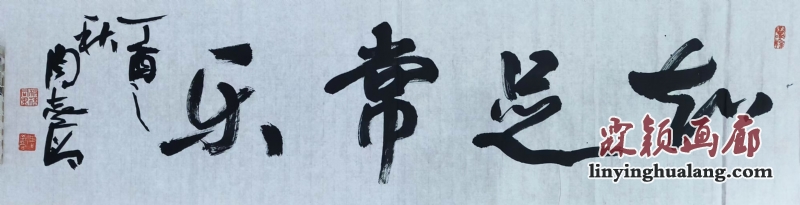 知足常乐
丁酉之
秋
霖颖画廊
linyinghualang.com